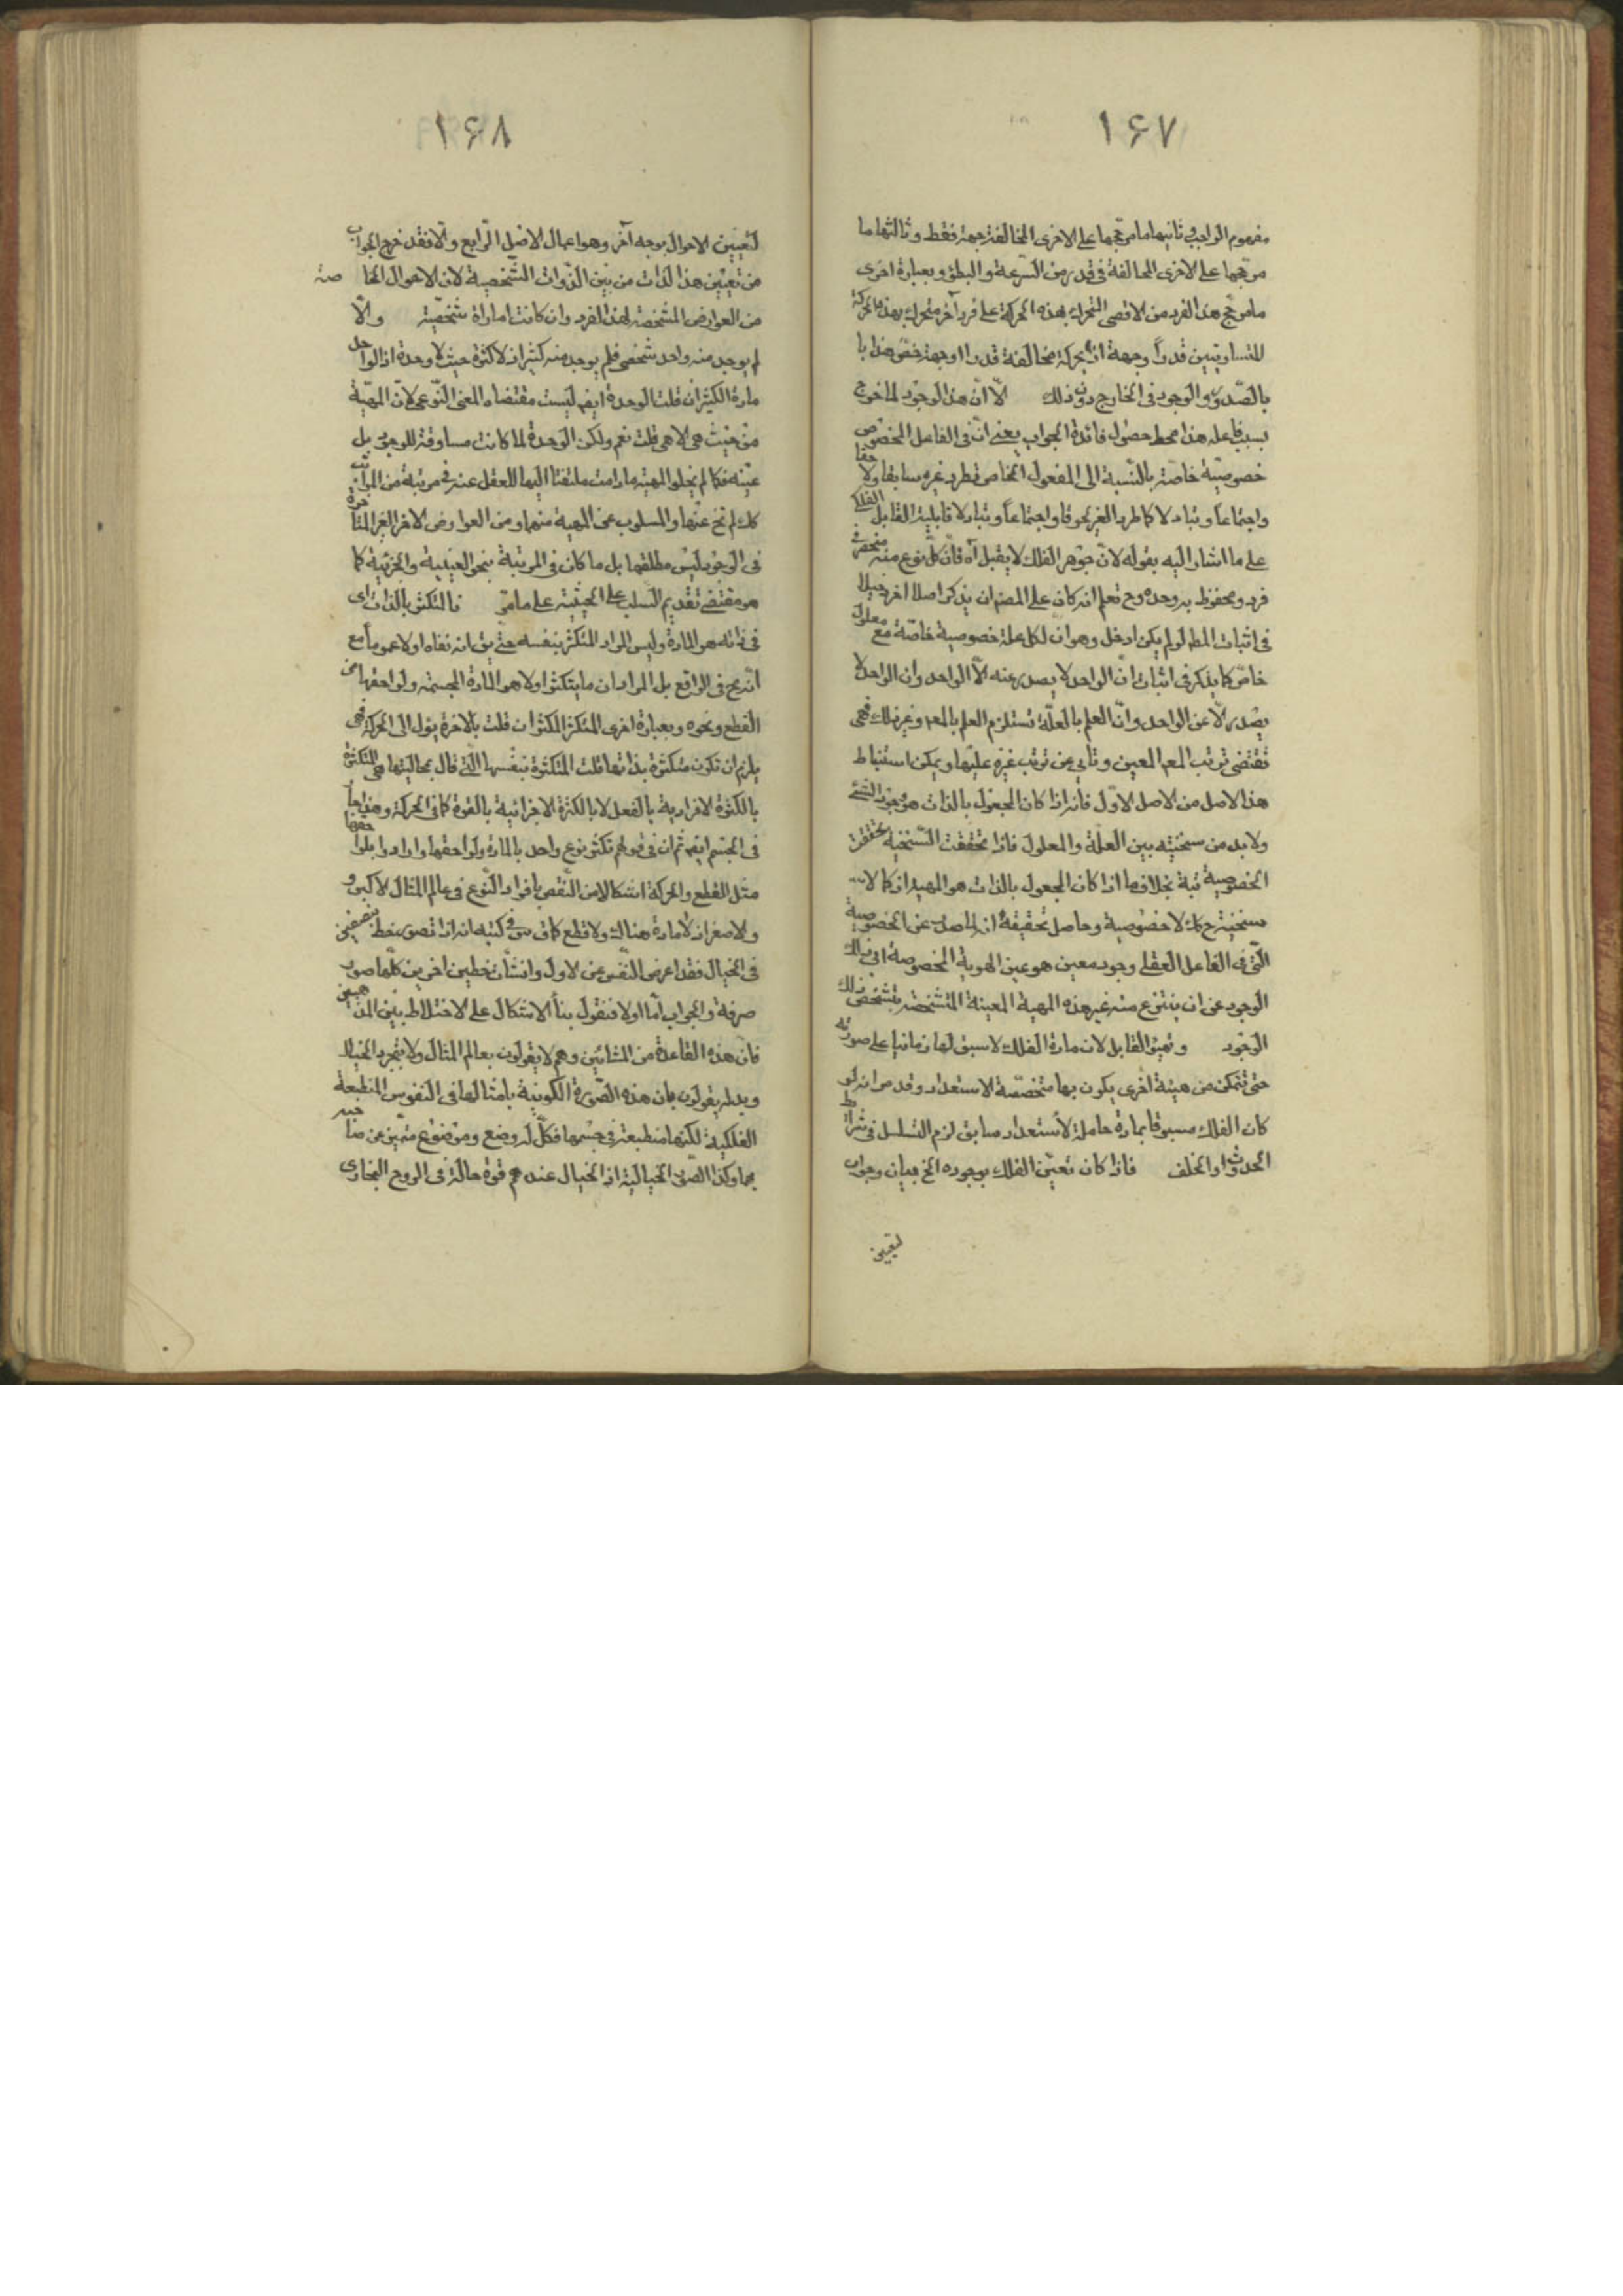 ۱۶۷
مفهوم الواجب وثانيها ما مرجحها على الاخرى المخالفة جهة فقط وثالثها ما
مرجحها على الاخرى المخالفة فى قدر من السرعة والبطؤ وبعبارة اخرى
ما مرجح هذا الفرد من الاقصى المتحرك بهذه الحركة على فرد آخر متحرك بهذه الحركة
المتساويتين قدراً وجهة او بحركة مخالفة قدرا او جهة خص هذا با
بالصدور والوجود فى الخارج دون ذلك الّا ان هذا الوجود لما خرج
بسبب فاعله هذا محط حصول فائدة الجواب يعنى ان فى الفاعل المخصوص
خصوصيّة خاصّة بالنسبة الى المفعول الخاص تطرد غيره سابقا ولاحقا
واجتماعاً وتبادلا كما طرد الغير لحوقا واجتماعاً وتبادلا قابلية القابل الفلكى
على ما اشار اليه بقوله لانّ جوهر الفلك لا يقبل آه فانّ كلّ نوع منه منحصر فى
فرد ومحفوظ به وحده وح تعلم انه كان على المصنف ان يذكر اصلا آخر دخيلا
فى اثبات المط لو لم يكن ادخل وهو ان لكل علة خصوصية خاصّة مع معلول
خاصّ كما يذكر فى اثبات انّ الواحد لا يصدر عنه الّا الواحد وان الواحد لا
يصدر الّا عن الواحد وانّ العلم بالعلّة تستلزم العلم بالمعـ وغير ذلك فهى
تقتضى ترتب المعـ المعين وتأبى عن ترتب غيره عليها ويمكن استنباط
هذا الاصل من الاصل الاوّل فانه اذا كان المجعول بالذات هو وجود الشئ
ولا بد من سنخيّة بين العلّة والمعلول فاذا تحققت السّنخية تحققت
الخصوصية بتة بخلاف ما اذا كان المجعول بالذات هو المهية اذ كما لا
سنخية ح كك لا خصوصية وحاصل تحقيقه ان الماصدق عن الخصوصية
الّتى فى الفاعل العقلى وجود معين هو عين الهوية المخصوصة ابى ذلك
الوجود عن ان ينتزع منه غير هذه المهية المعينة المتشخصة بتشخص ذلك
الوجود وتهيؤ القابل لان مادة الفلك لا سبق لها زمانيا على صورته
حتى تتمكن من هيئة اخرى يكون بها متخصّصة الاستعداد وقد مر انه لو
كان الفلك مسبوقا بمادة حاملة لاستعداد سابق لزم التسلسل فى شرائط
الحدوث او الخلف فاذا كان تعيّن الفلك بوجوده الخ فبيان وجواب
لتعيين
۱۶۸
لتعيين الاحوال بوجه آخر وهو اعمال الاصل الرّابع والّا فقد خرج الجواب
من تعيين هذا الذات من بين الذّوات الشّخصية لان الاحوال الخاصة
من العوارض المشخصة لهذا الفرد وان كانت امارات شخصيّة والّا
لم يوجد منه واحد شخصى فلم يوجد منه كثير اذ لا كثرة حيث لا وحدة اذ الواحد
مادة الكثير ان قلت الوحدة ايضا ليست مقتضاه المعنى النّوعى لانّ المهيّة
من حيث هى الا هى قلت نعم ولكن الوحدة لما كانت مساوقة للوجود بل
عينه فكما لم يخلو المهية ما دامت ملتفتا اليها للعقل عنه فى مرتبة من المراتب
كك لم تخ عنها والمسلوب عن المهية منهما ومن العوارض الاخر الغير المتأخرة
فى الوجود ليس مطلقها بل ما كان فى المرتبة بنحو العينية والجزئية كما
هو مقتضى تقديم السلب على الحيثية على ما مرّ فالتكثر بالذات اى
فى ذاته هو المادة وليس المراد المتكثر بنفسه حتى يق انه نفاه اولا عموماً مع
انّه يح فى الواقع بل المراد ان ما يتكثر اولا هو المادة الجسمية ولواحقها من
القطع ونحوه وبعبارة اخرى المتكثر المكثر ان قلت بالاخرة يؤل الى الحركة فهى
يلزم ان تكون متكثرة بذاتها قلت المتكثرة بنفسها التى قال بمحاليتها هى المتكثرة
بالكثرة الافرادية بالفعل لا بالكثرة الاجزائية بالقوة كما فى الحركة وهذا جار
فى الجسم ايضا ثم ان فى قولهم تكثر نوع واحد بالمادة ولواحقها وارادوا بلواحقها
مثل القطع والحركة اشكالا من النّقض بافراد النّوع فى عالم المثال الاكبر و
والاصغر اذ لا مادة هناك ولا قطع كما فى كتبه انه اذا تصور خط بنصفين
فى الخيال فقد اعرض النّفس عن الاول وانشأت خطين اخرين كلها صور
صرفة والجواب امّا اولا فنقول بناء الاشكال على الاختلاط بين المذهبين
فان هذه القاعدة من المشائين وهم لا يقولون بعالم المثال ولا بتجرد الخيال
وبدله يقولون بان هذه الصّورة الكونية بامثالها فى النفوس المنطبعة
الفلكية لكنها منطبعة فى جسمها فكلّ له وضع وموضوع متميز عن صاحبه
بها وكذا الصّور الخيالية اذ الخيال عندهم قوة حالّة فى الروح البخارى